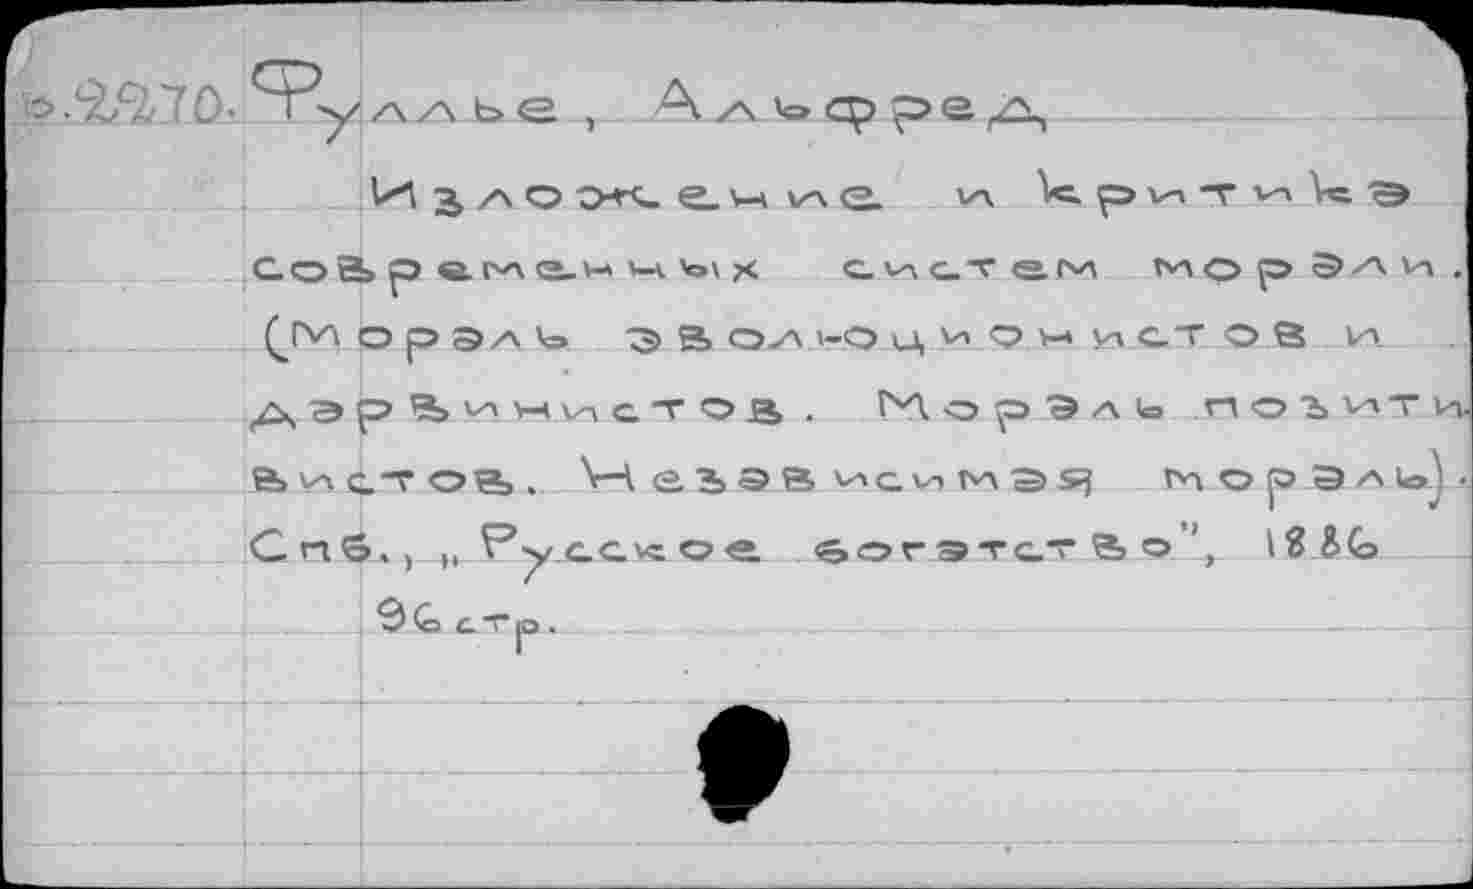 .22270. Фуллье, Альфред
Изложение и критика
современных систем морали.
(Мораль эволюционистов и
дарвинистов. Мораль позити-
вистов. Независимая мораль).
Спб., „Русское богатство", 1886
96 стр.